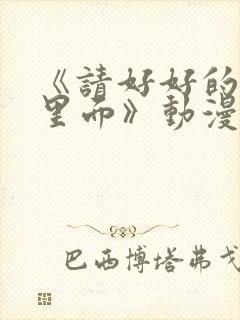 《請好好的
里面》動漫
巴西博塔弗戈